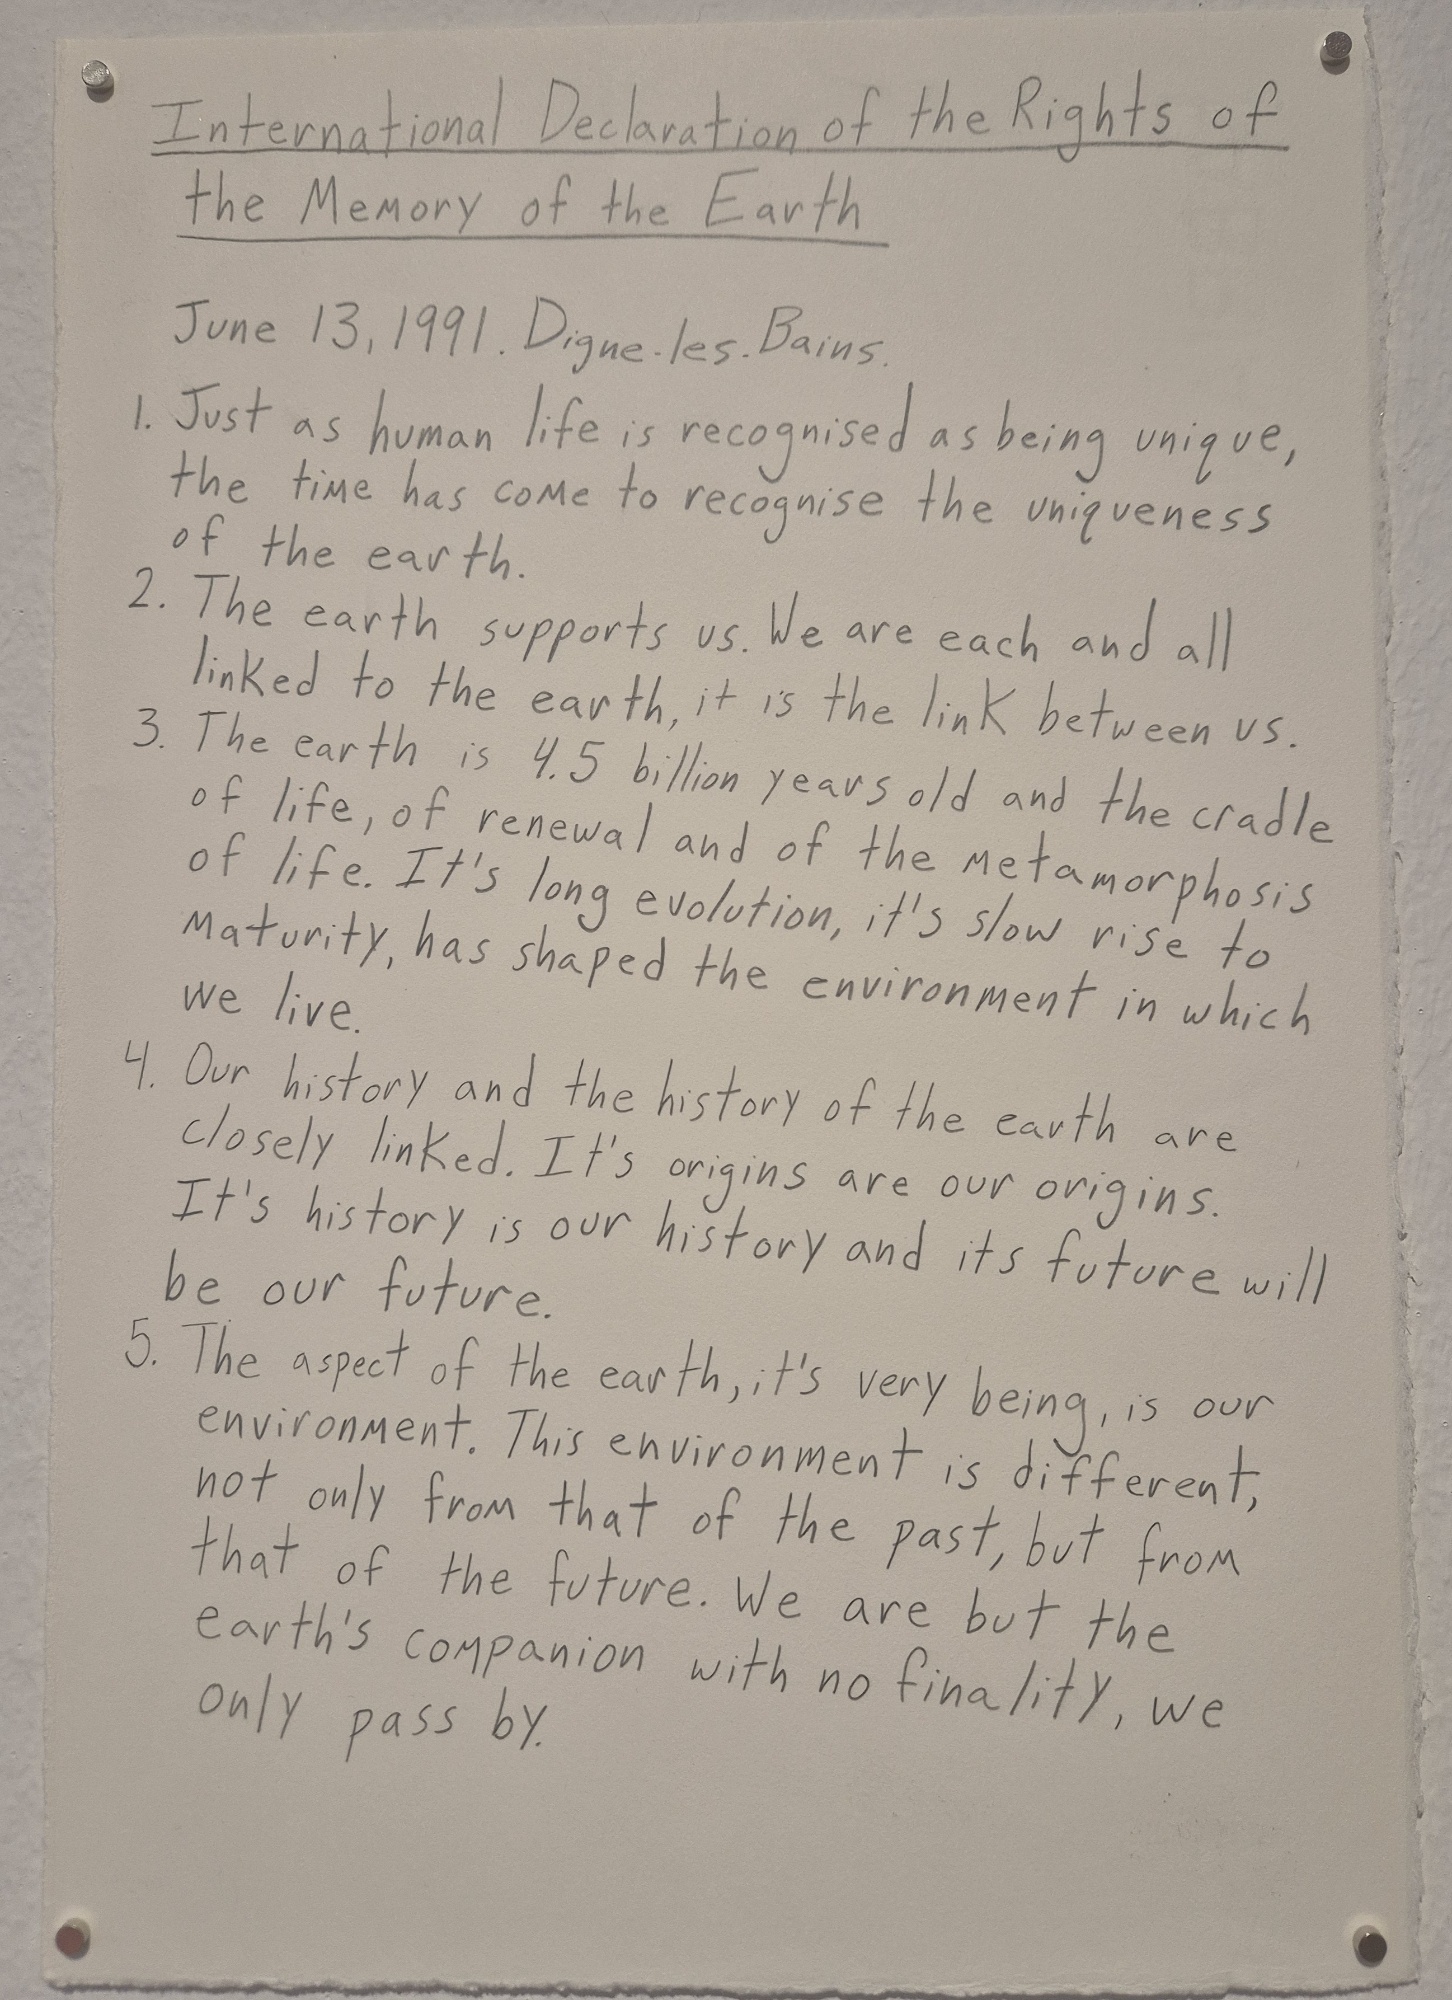 International Declaration of the Rights of
the Memory of the Earth
June 13, 1991. Digne-les-Bains.
1. Just as human life is recognised as being unique,
the time has come to recognise the uniqueness
of the earth.
2. The earth supports us. We are each and all
linked to the earth, it is the link between us.
3. The earth is 4.5 billion years old and the cradle
of life, of renewal and of the metamorphosis
of life. It's long evolution, it's slow rise to
maturity, has shaped the environment in which
we live.
4. Our history and the history of the earth are
closely linked. It's origins are our origins.
It's history is our history and its future will
be our future.
5. The aspect of the earth, it's very being, is our
environment. This environment is different,
not only from that of the past, but from
that of the future. We are but the
earth's companion with no finality, we
only pass by.